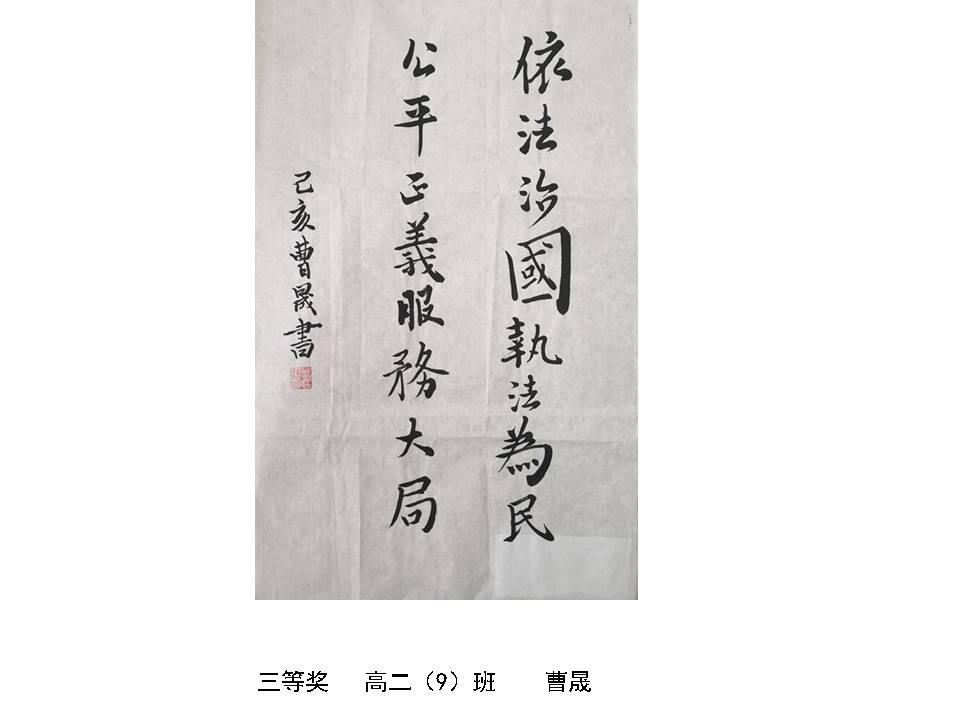 依法治國執法為民
公平正義服務大局
己亥曹晟書
三等奖 高二（9）班 曹晟